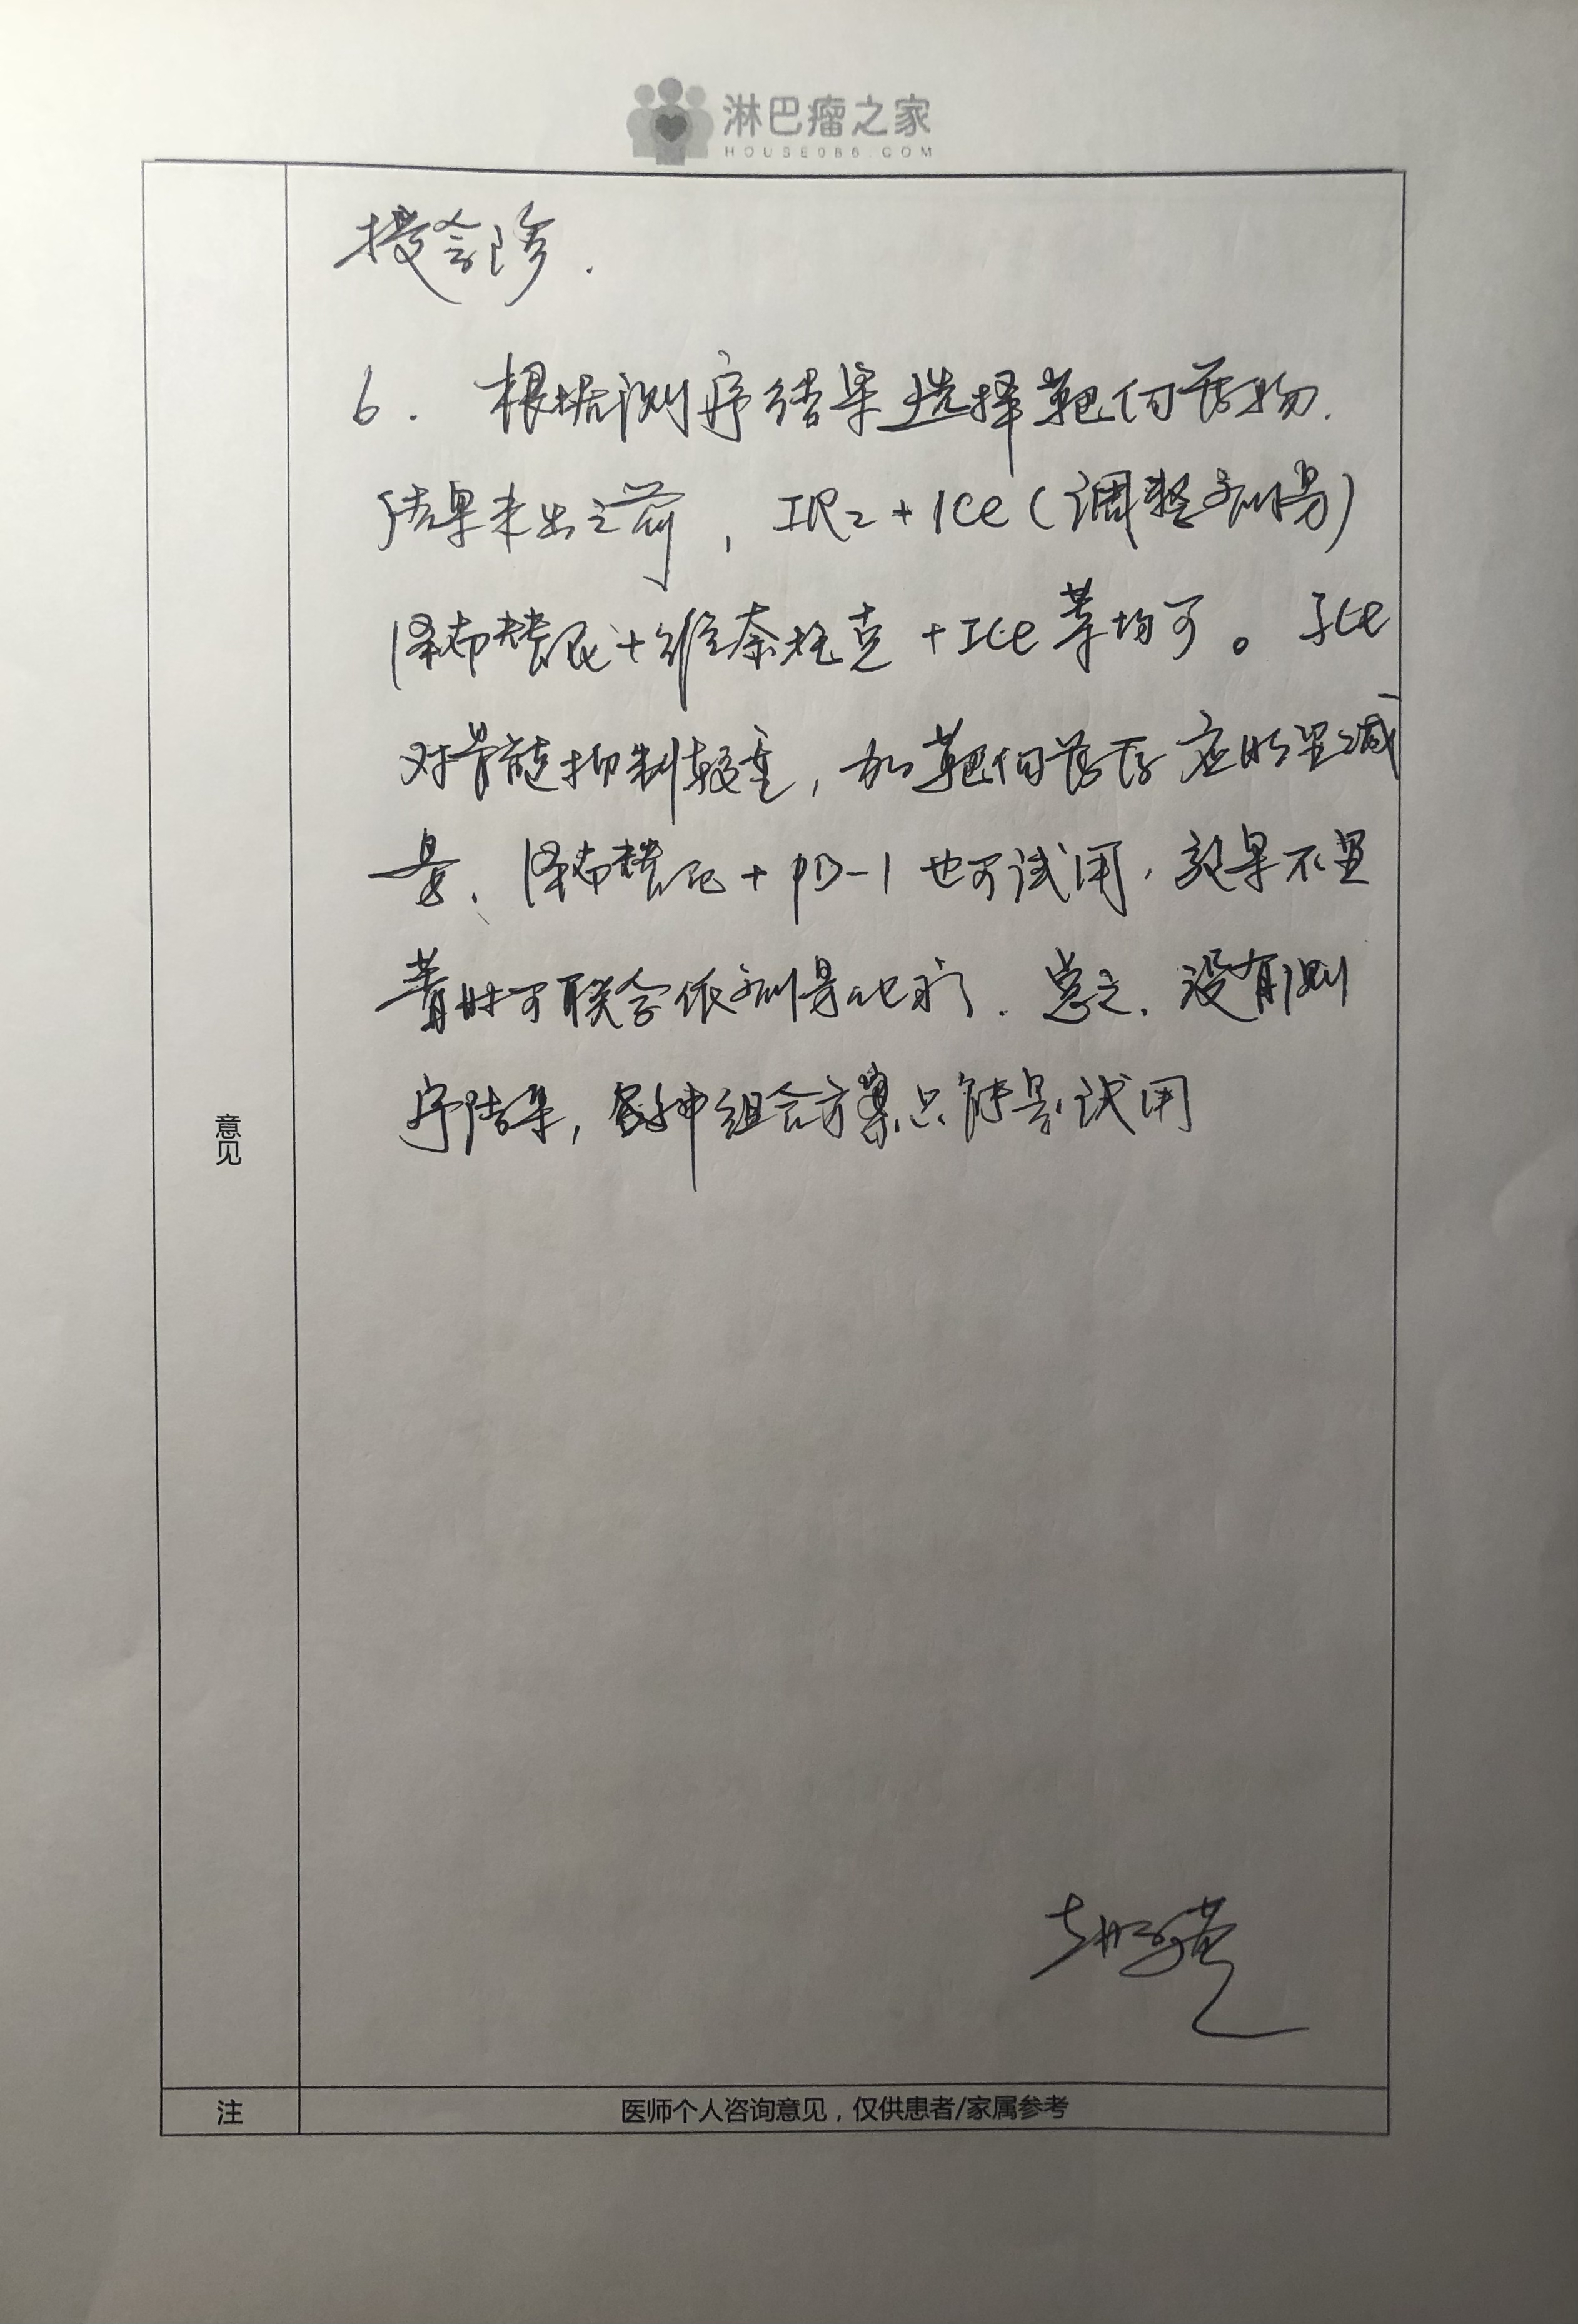 淋巴瘤之家
HOUSE086.COM
接会诊.
6. 根据测序结果选择靶向药物.
结果未出之前, IR2+ICe(调整剂量)
泽布替尼+维奈托克+ICe等均可。ICe
对骨髓抑制较重,加靶向药后应明显减
量、泽布替尼+PD-1也可试用,效果不显
著时可联合低剂量化疗.总之.没有测
序结果,各种组合方案只能是试用
意见
注
医师个人咨询意见,仅供患者/家属参考